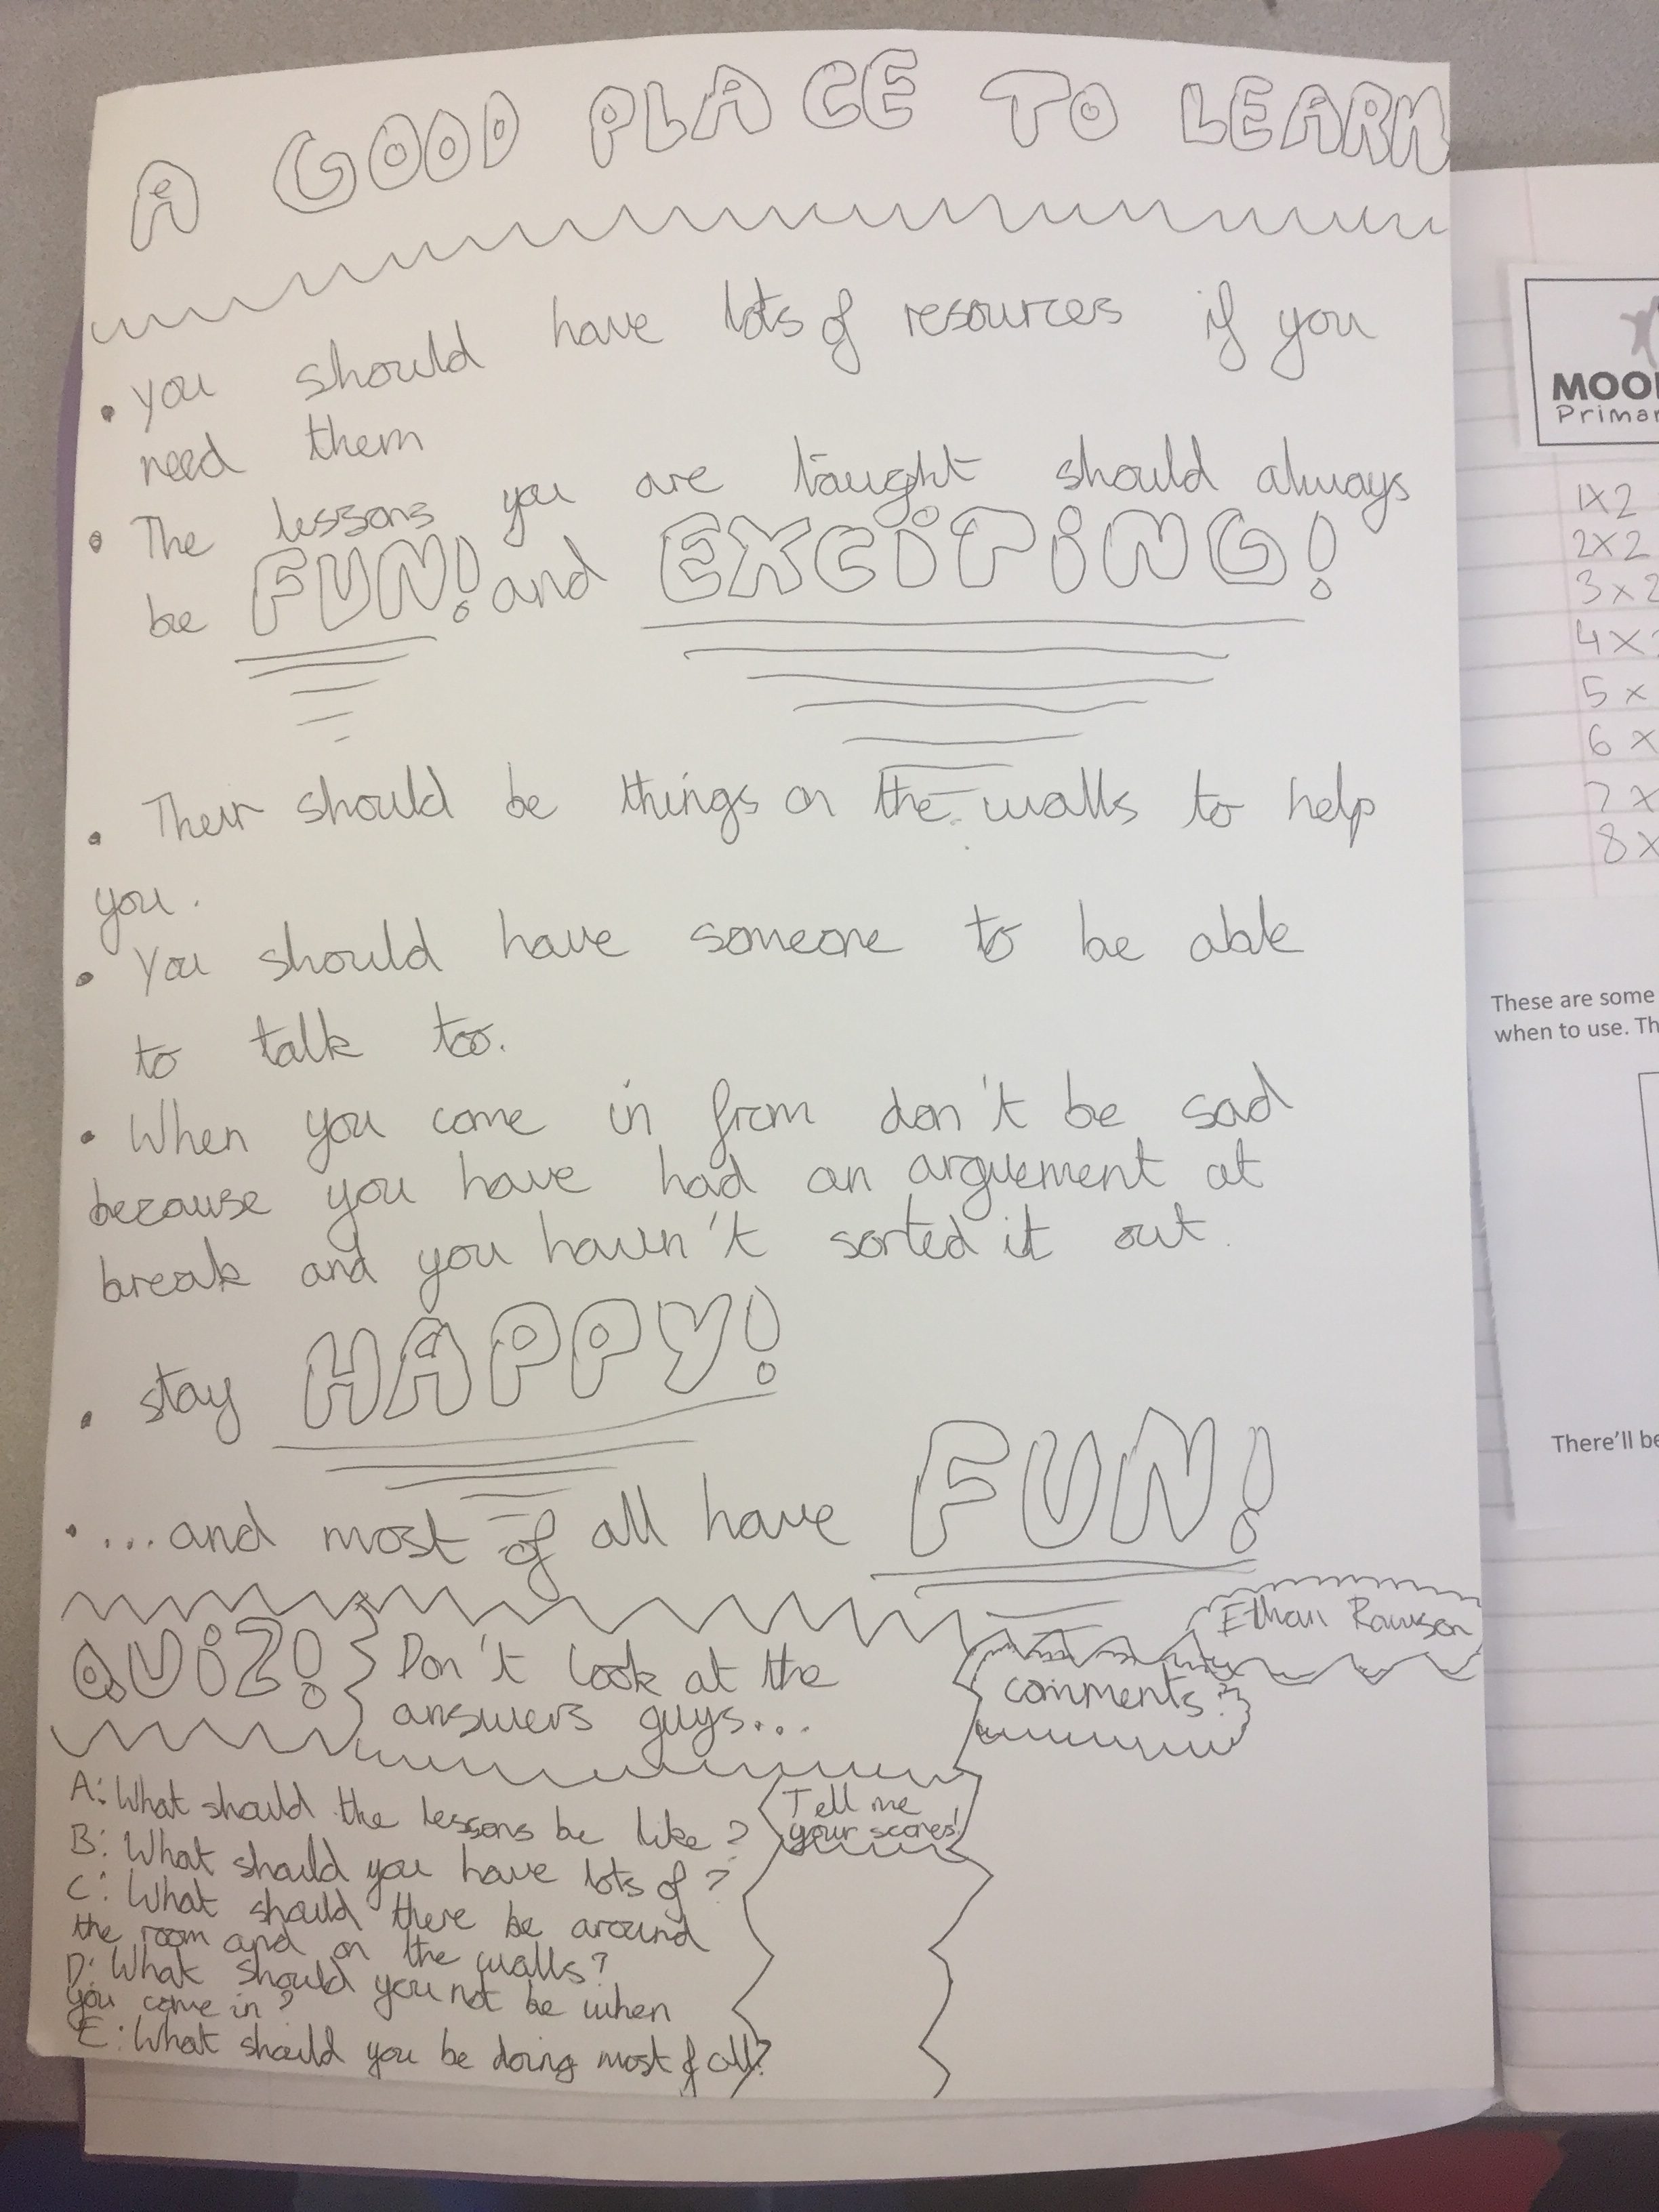 A GOOD PLACE TO LEARN
• You should have lots of resources if you
need them
• The lessons you are taught should always
be FUN! and EXCITING!
• Their should be things on the walls to help
you.
• You should have someone to be able
to talk too.
• When you come in from don't be sad
because you have had an arguement at
break and you havn't sorted it out.
• stay HAPPY!
• ...and most of all have FUN!
Ethan Rawson
QUIZ!
Don't look at the
answers guys...
comments:
Tell me
your scores!
A: What should the lessons be like?
B: What should you have lots of?
C: What should there be around
the room and on the walls?
D: What should you not be when
you come in?
E: What should you be doing most of all?
MOO
Primar
1x2
2x2
3x2
4x
5x
6x
7x
8x
These are some
when to use. Th
There'll be